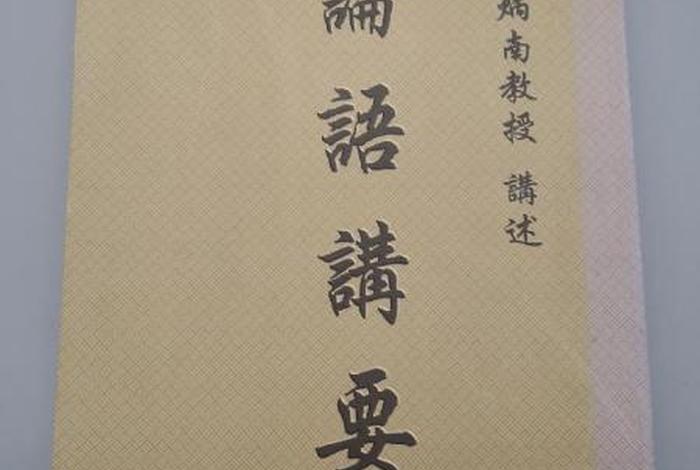 炳南教授 講述
論語講要